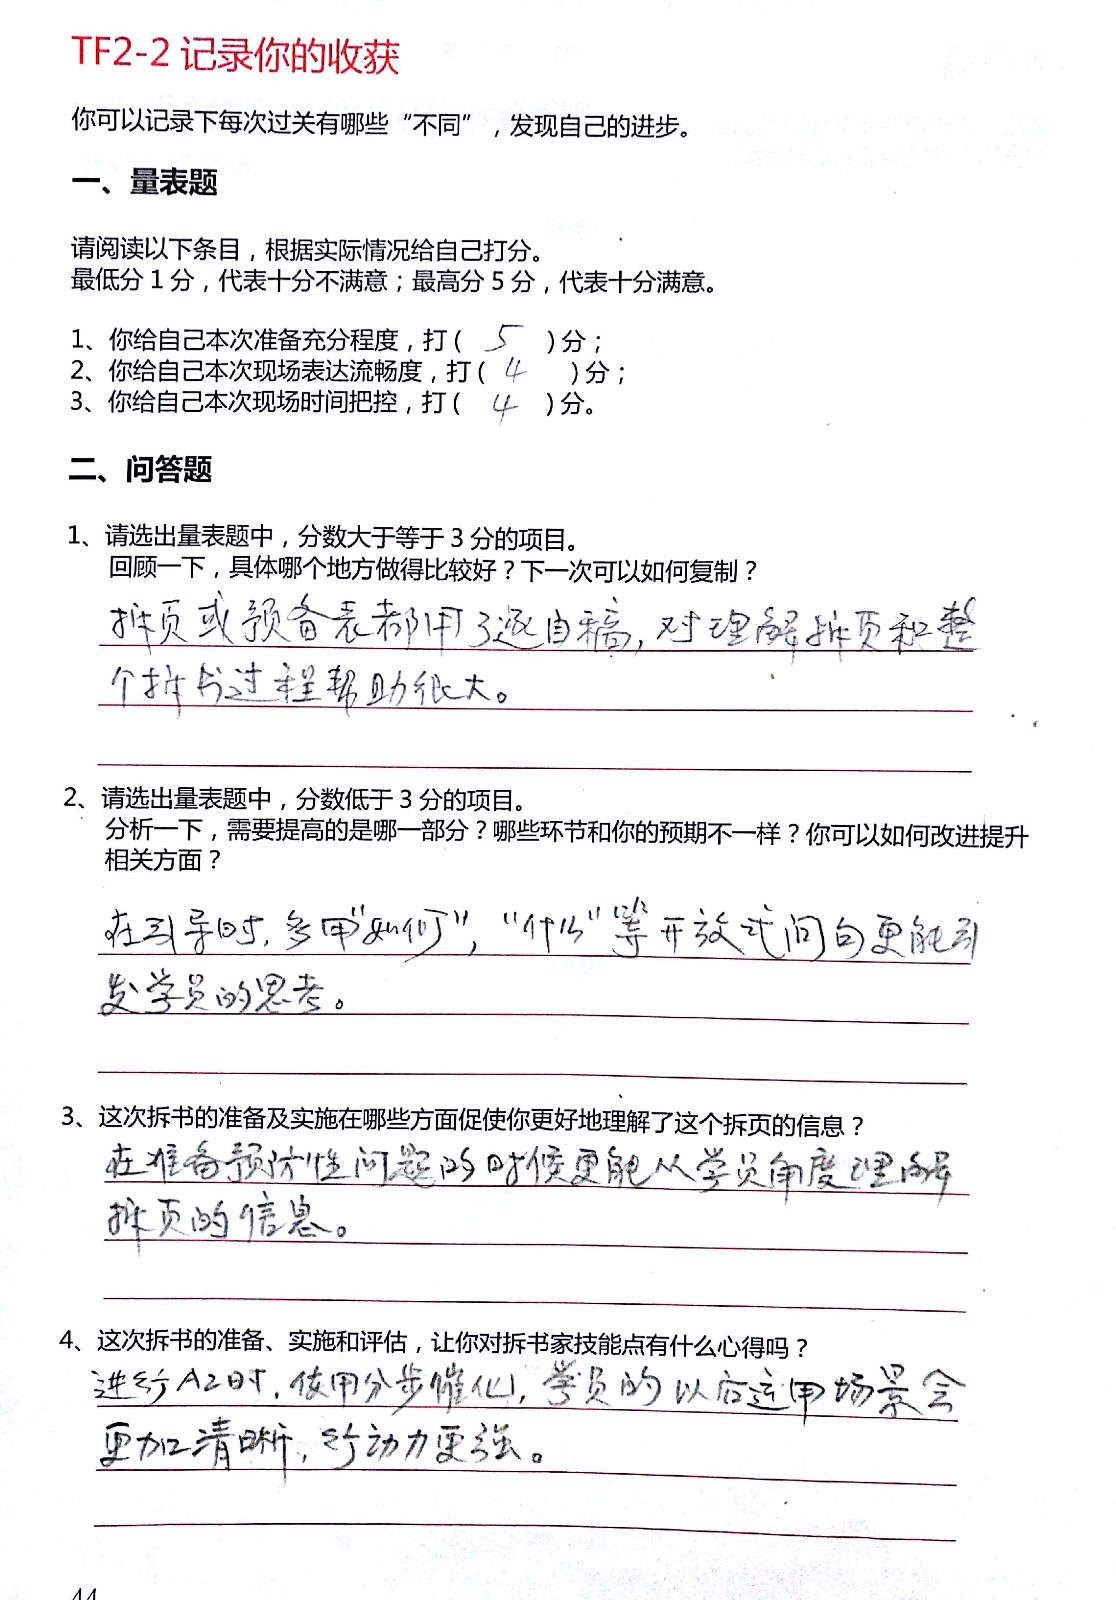 TF2-2 记录你的收获
你可以记录下每次过关有哪些“不同”，发现自己的进步。
一、量表题
请阅读以下条目，根据实际情况给自己打分。
最低分 1 分，代表十分不满意；最高分 5 分，代表十分满意。
1、你给自己本次准备充分程度，打( 5 )分；
2、你给自己本次现场表达流畅度，打( 4 )分；
3、你给自己本次现场时间把控，打( 4 )分。
二、问答题
1、请选出量表题中，分数大于等于 3 分的项目。
回顾一下，具体哪个地方做得比较好？下一次可以如何复制？
拆页或预备表都用了逐自稿，对理解拆页和整
个拆书过程帮助很大。
2、请选出量表题中，分数低于 3 分的项目。
分析一下，需要提高的是哪一部分？哪些环节和你的预期不一样？你可以如何改进提升
相关方面？
在引导时，多用“如何”，“什么”等开放式问句更能引
发学员的思考。
3、这次拆书的准备及实施在哪些方面促使你更好地理解了这个拆页的信息？
在准备预防性问题的时候更能从学员角度理解
拆页的信息。
4、这次拆书的准备、实施和评估，让你对拆书家技能点有什么心得吗？
进行A2时，使用分步催化，学员的以后运用场景会
更加清晰，行动力更强。
44